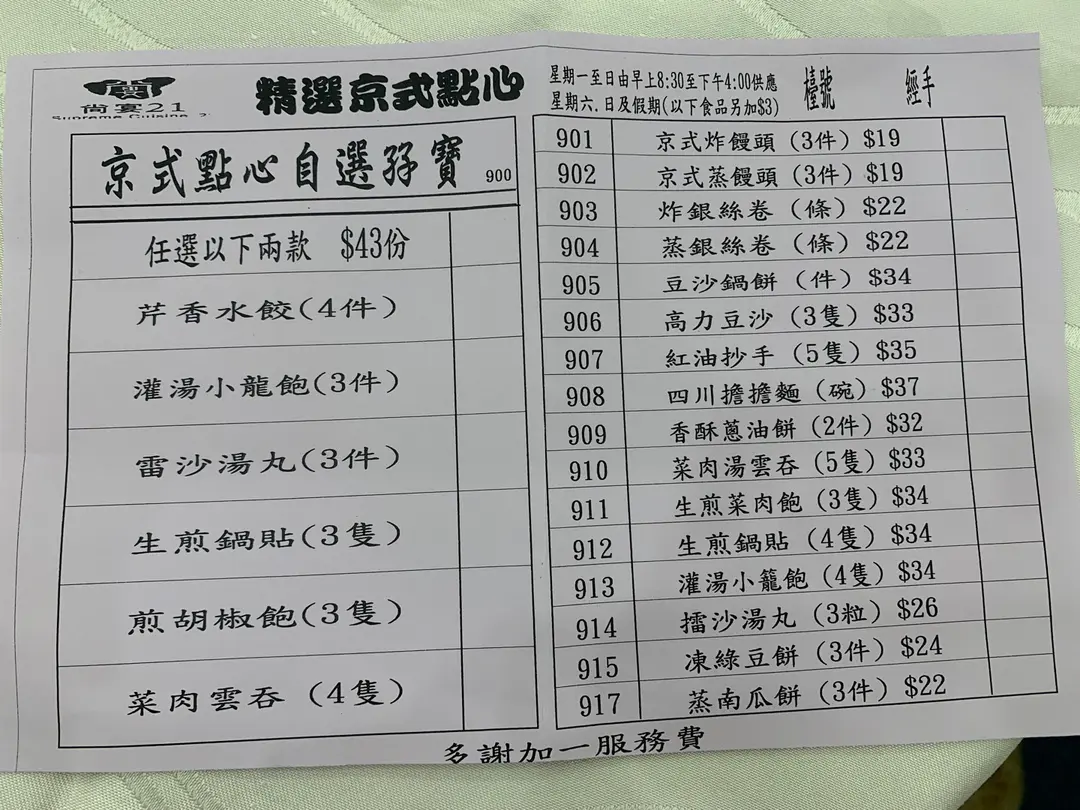 尚宴21
精選京式點心
星期一至日由早上8:30至下午4:00供應
星期六.日及假期(以下食品另加$3)
檯號
經手
京式點心自選孖寶 900
任選以下兩款 $43份
芹香水餃(4件)
灌湯小龍飽(3件)
雷沙湯丸(3件)
生煎鍋貼(3隻)
煎胡椒飽(3隻)
菜肉雲吞 (4隻)
901 京式炸饅頭 (3件) $19
902 京式蒸饅頭 (3件) $19
903 炸銀絲卷 (條) $22
904 蒸銀絲卷 (條) $22
905 豆沙鍋餅 (件) $34
906 高力豆沙 (3隻) $33
907 紅油抄手 (5隻) $35
908 四川擔擔麵 (碗) $37
909 香酥蔥油餅 (2件) $32
910 菜肉湯雲吞 (5隻) $33
911 生煎菜肉飽 (3隻) $34
912 生煎鍋貼 (4隻) $34
913 灌湯小籠飽 (4隻) $34
914 擂沙湯丸 (3粒) $26
915 凍綠豆餅 (3件) $24
917 蒸南瓜餅 (3件) $22
多謝加一服務費